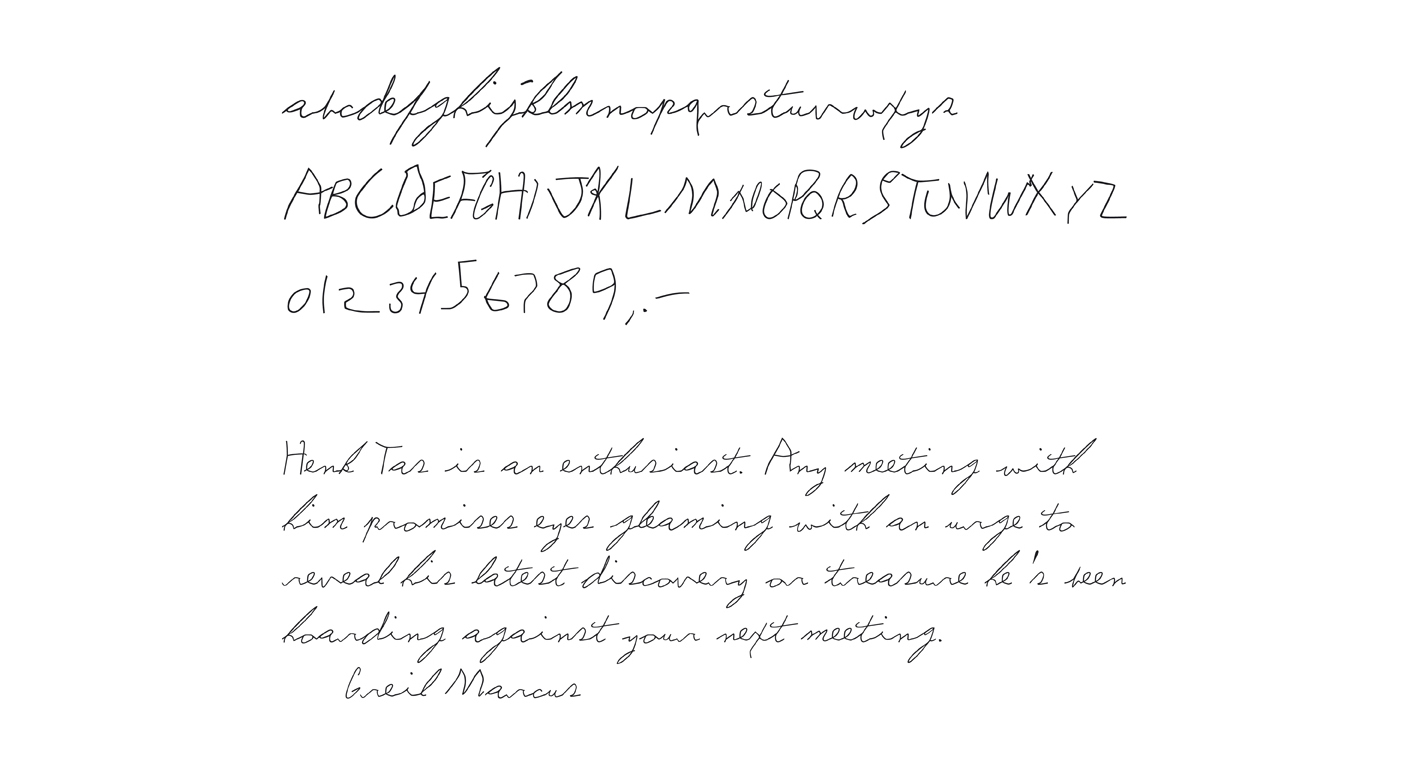 abcdefghijklmnopqrstuvwxyz
ABCDEFGHIJKLMNOPQRSTUVWXYZ
0123456789,.-
Henk Tas is an enthusiast. Any meeting with
him promises eyes gleaming with an urge to
reveal his latest discovery or treasure he's been
hoarding against your next meeting.
Greil Marcus